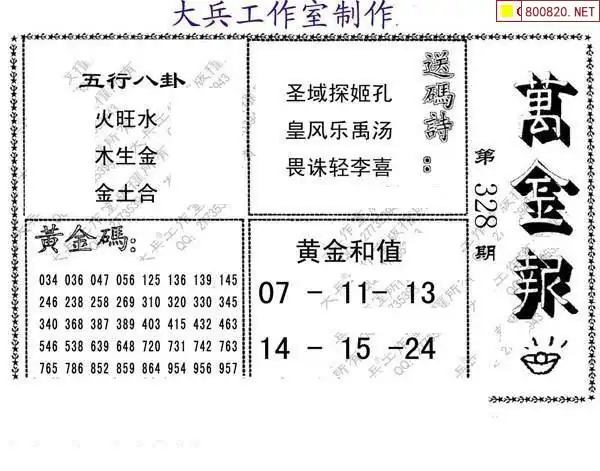 大兵工作室制作
800820.NET
五行八卦
火旺水
木生金
金土合
送碼詩:
圣域探姬孔
皇风乐禹汤
畏诛轻李喜
萬金報
第328期
黃金碼:
034 036 047 056 125 136 139 145
246 238 258 269 310 320 330 345
340 368 387 389 403 415 432 463
546 538 639 648 720 731 742 763
765 786 852 859 864 954 956 957
黄金和值
07 - 11- 13
14 - 15 -24